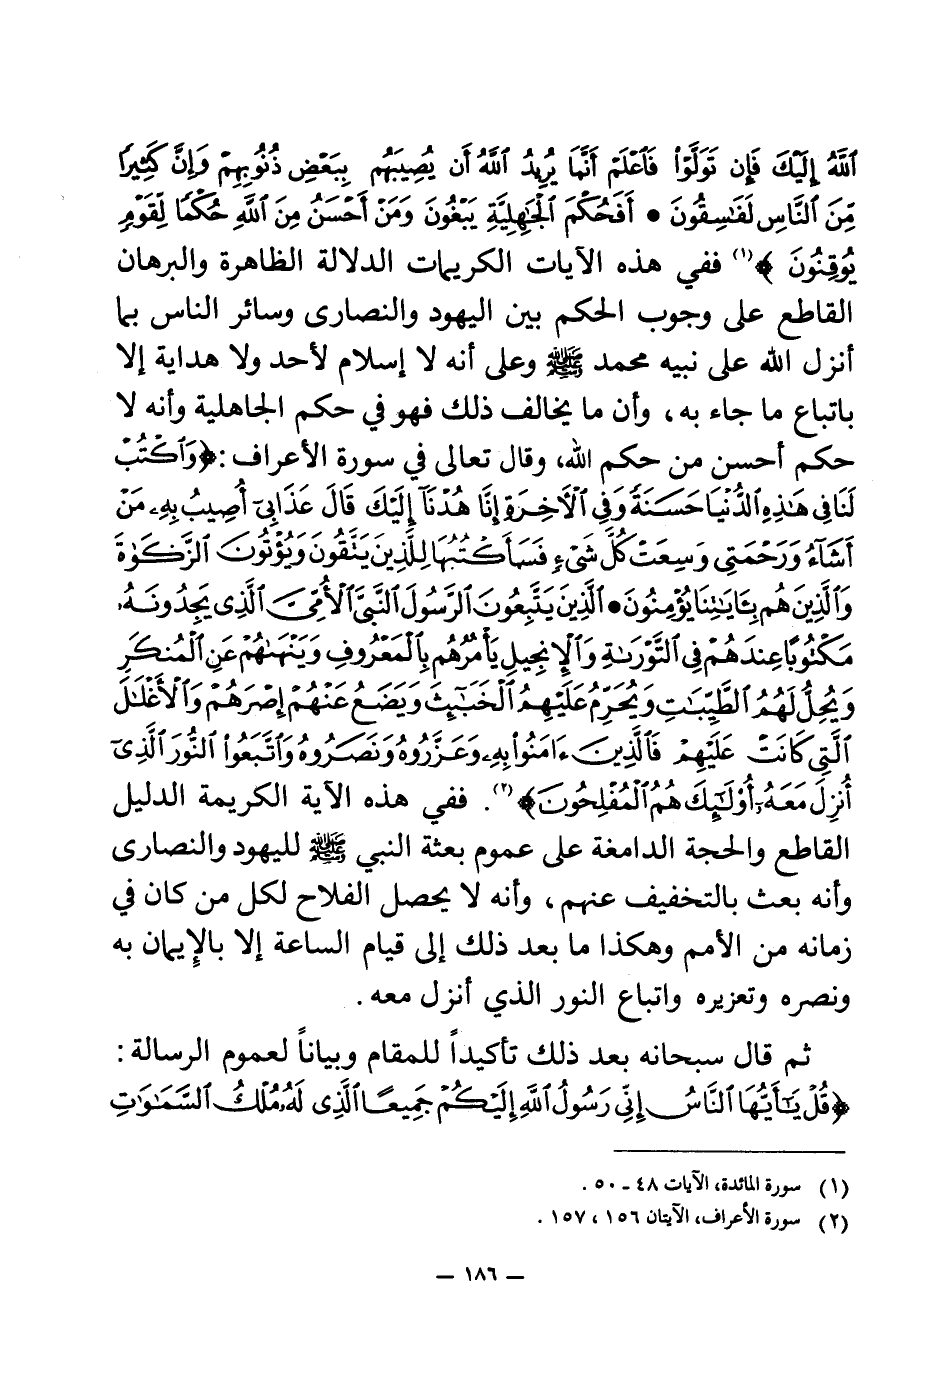 ٱللَّهُ إِلَيْكَ فَإِن تَوَلَّوْا۟ فَٱعْلَمْ أَنَّمَا يُرِيدُ ٱللَّهُ أَن يُصِيبَهُم بِبَعْضِ ذُنُوبِهِمْ وَإِنَّ كَثِيرًا
مِّنَ ٱلنَّاسِ لَفَـٰسِقُونَ • أَفَحُكْمَ ٱلْجَـٰهِلِيَّةِ يَبْغُونَ وَمَنْ أَحْسَنُ مِنَ ٱللَّهِ حُكْمًا لِّقَوْمٍ
يُوقِنُونَ ﴾(١) ففي هذه الآيات الكريمات الدلالة الظاهرة والبرهان
القاطع على وجوب الحكم بين اليهود والنصارى وسائر الناس بما
أنزل الله على نبيه محمد ﷺ وعلى أنه لا إسلام لأحد ولا هداية إلا
باتباع ما جاء به، وأن ما يخالف ذلك فهو في حكم الجاهلية وأنه لا
حكم أحسن من حكم الله، وقال تعالى في سورة الأعراف: ﴿وَٱكْتُبْ
لَنَا فِى هَـٰذِهِ ٱلدُّنْيَا حَسَنَةً وَفِى ٱلْـَٔاخِرَةِ إِنَّا هُدْنَآ إِلَيْكَ قَالَ عَذَابِىٓ أُصِيبُ بِهِۦ مَنْ
أَشَآءُ وَرَحْمَتِى وَسِعَتْ كُلَّ شَىْءٍ فَسَأَكْتُبُهَا لِلَّذِينَ يَتَّقُونَ وَيُؤْتُونَ ٱلزَّكَوٰةَ
وَٱلَّذِينَ هُم بِـَٔايَـٰتِنَا يُؤْمِنُونَ • ٱلَّذِينَ يَتَّبِعُونَ ٱلرَّسُولَ ٱلنَّبِىَّ ٱلْأُمِّىَّ ٱلَّذِى يَجِدُونَهُۥ
مَكْتُوبًا عِندَهُمْ فِى ٱلتَّوْرَىٰةِ وَٱلْإِنجِيلِ يَأْمُرُهُم بِٱلْمَعْرُوفِ وَيَنْهَىٰهُمْ عَنِ ٱلْمُنكَرِ
وَيُحِلُّ لَهُمُ ٱلطَّيِّبَـٰتِ وَيُحَرِّمُ عَلَيْهِمُ ٱلْخَبَـٰٓئِثَ وَيَضَعُ عَنْهُمْ إِصْرَهُمْ وَٱلْأَغْلَـٰلَ
ٱلَّتِى كَانَتْ عَلَيْهِمْ فَٱلَّذِينَ ءَامَنُوا۟ بِهِۦ وَعَزَّرُوهُ وَنَصَرُوهُ وَٱتَّبَعُوا۟ ٱلنُّورَ ٱلَّذِىٓ
أُنزِلَ مَعَهُۥٓ أُو۟لَـٰٓئِكَ هُمُ ٱلْمُفْلِحُونَ﴾(٢). ففي هذه الآية الكريمة الدليل
القاطع والحجة الدامغة على عموم بعثة النبي ﷺ لليهود والنصارى
وأنه بعث بالتخفيف عنهم، وأنه لا يحصل الفلاح لكل من كان في
زمانه من الأمم وهكذا ما بعد ذلك إلى قيام الساعة إلا بالإيمان به
ونصره وتعزيره واتباع النور الذي أنزل معه.
ثم قال سبحانه بعد ذلك تأكيداً للمقام وبياناً لعموم الرسالة:
﴿قُلْ يَـٰٓأَيُّهَا ٱلنَّاسُ إِنِّى رَسُولُ ٱللَّهِ إِلَيْكُمْ جَمِيعًا ٱلَّذِى لَهُۥ مُلْكُ ٱلسَّمَـٰوَٰتِ
(١) سورة المائدة، الآيات ٤٨ ـ ٥٠.
(٢) سورة الأعراف، الآيتان ١٥٦، ١٥٧.
— ١٨٦ —